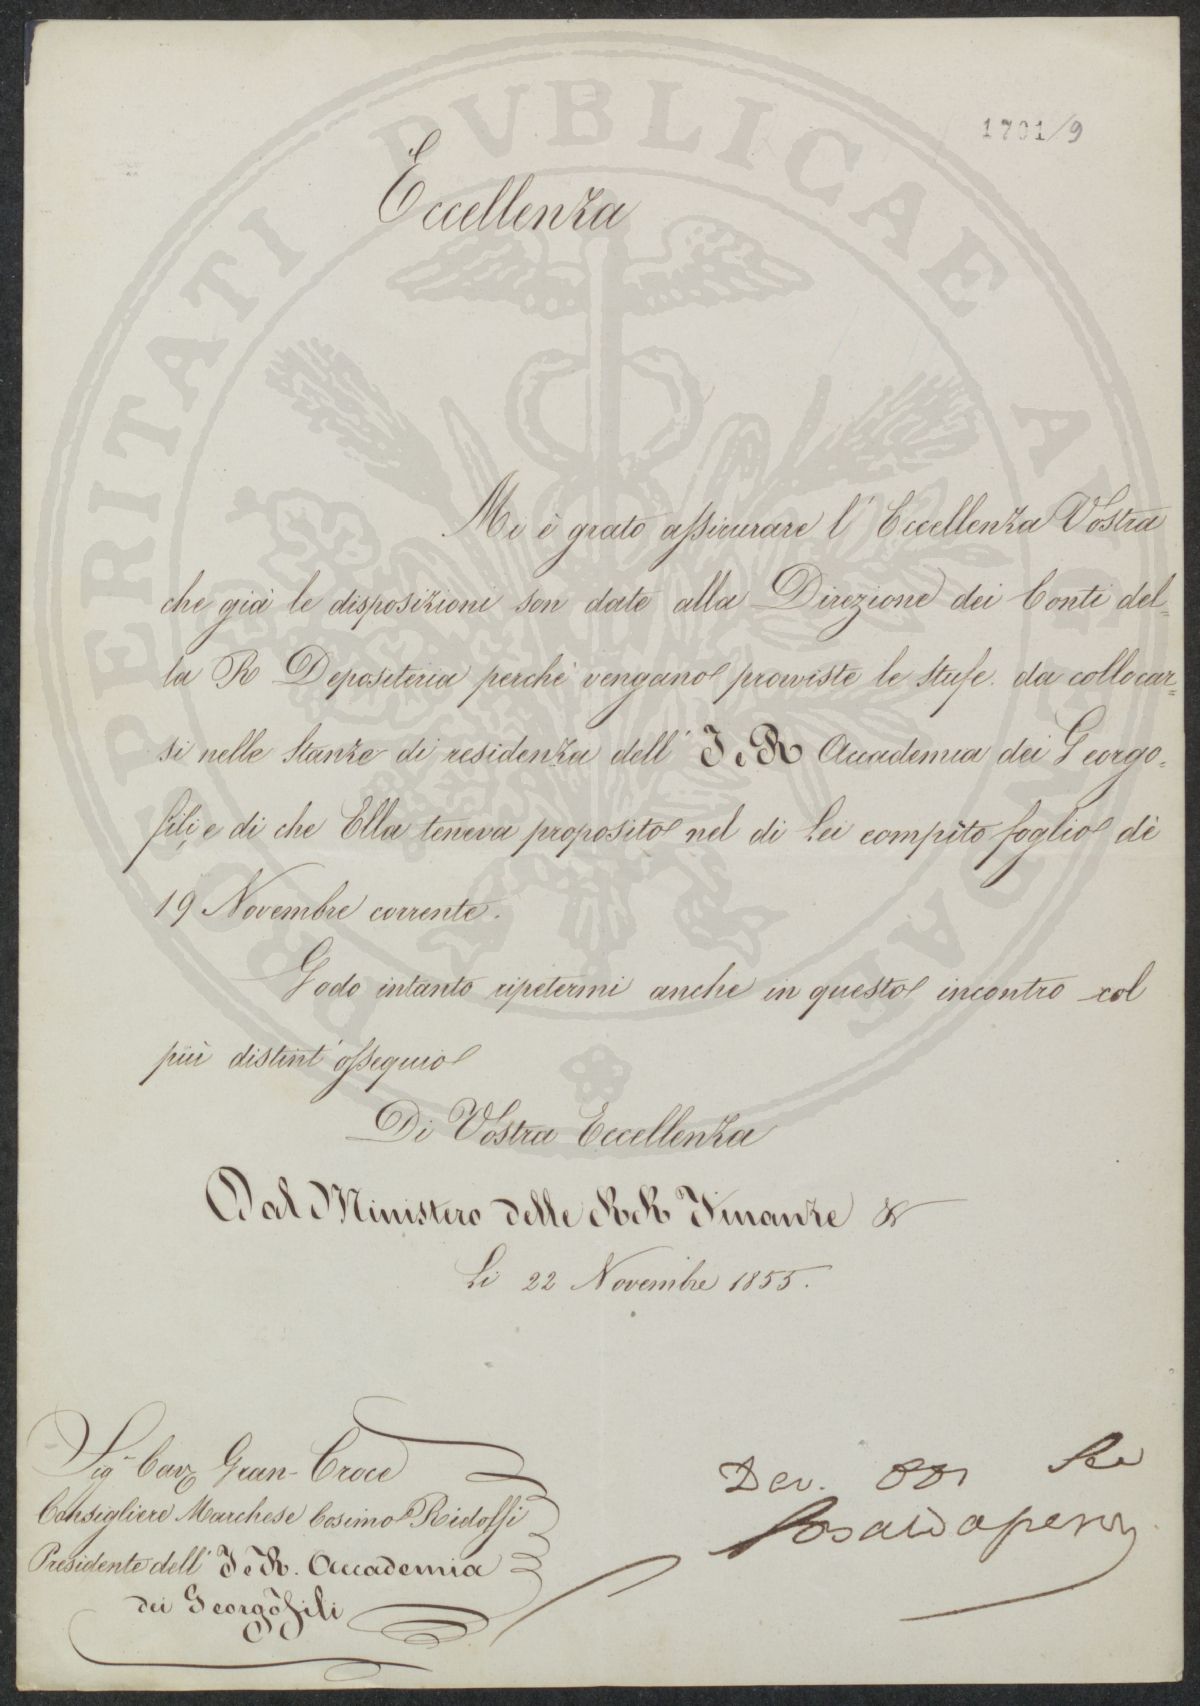 1701/9
Eccellenza
Mi è grato assicurare l'Eccellenza Vostra
che già le disposizioni son date alla Direzione dei Conti del=
la R Depositeria perchè vengano provviste le stufe da collocar=
si nelle stanze di residenza dell'I e R Accademia dei Georgo=
fili, e di che Ella teneva proposito nel di Lei compìto foglio de'
19 Novembre corrente.
Godo intanto ripetermi anche in questo incontro col
più distint'ossequio
Di Vostra Eccellenza
Dal Ministero delle RR Finanze
Li 22 Novembre 1855.
Sig.r Cav. Gran-Croce
Consigliere Marchese Cosimo Ridolfi
Presidente dell'I e R. Accademia
dei Georgofili
Dev.
PROSPERITATI PVBLICAE AVGENDAE